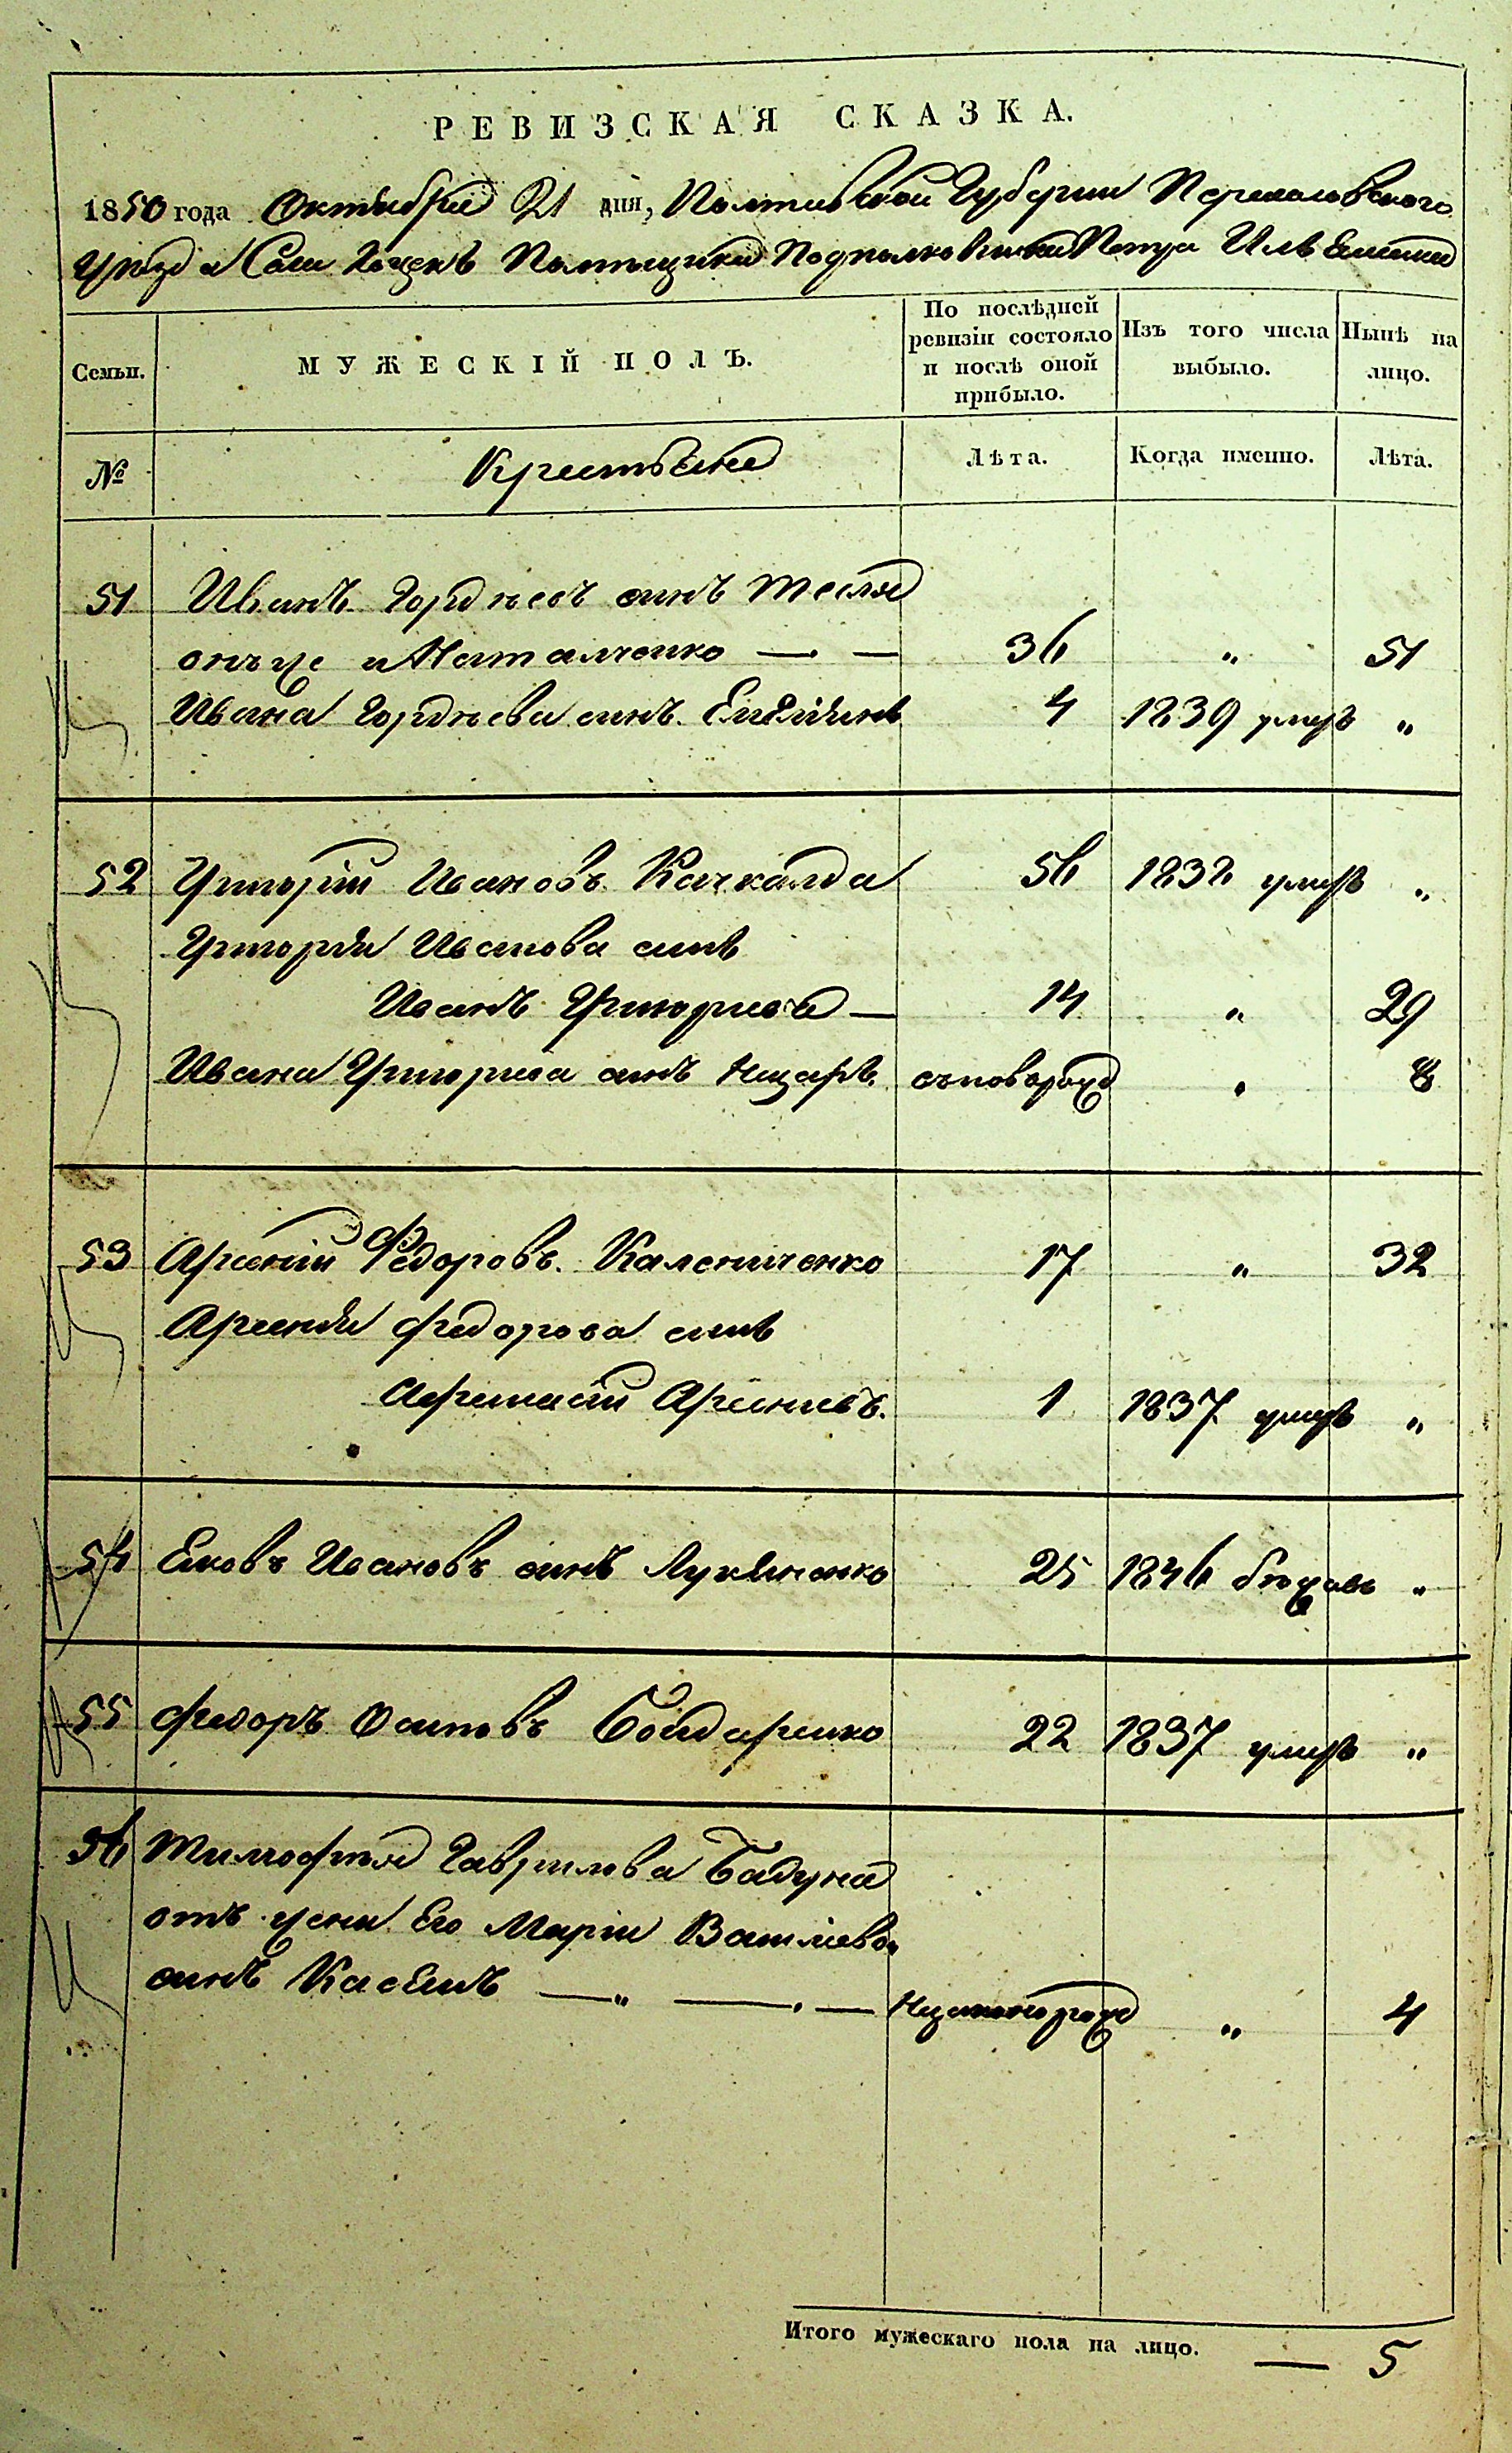 РЕВИЗСКАЯ СКАЗКА.
1850 года Октября 21 дня, Полтавской Губернии
Уезда Помещика Подполковника Петра
Семьи.
МУЖЕСКІЙ ПОЛЪ.
По послѣдней ревизіи состояло и послѣ оной прибыло.
Изъ того числа выбыло.
Нынѣ на лицо.
№
Крестьяне
Лѣта.
Когда именно.
Лѣта.
51 Иванъ Гордѣевъ синъ Тесля
онъ же и Наталченко — — 36 " 51
Ивана Гордѣева синъ 4 1839 умеръ "
52 Григорій Ивановъ Качкалда 56 1838 умеръ "
Григорія Иванова синъ
Иванъ Григорьевъ — 14 " 29
Ивана Григорьева синъ Назаръ " 8
53 Арсеній Федоровъ Калениченко 17 " 32
Арсенія Федорова синъ
Афанасій Арсеніевъ. 1 1837 умеръ "
54 Яковъ Ивановъ синъ Лукяненко 25 1846 бежавъ "
55 Федоръ Осиповъ Бондаренко 22 1837 умеръ "
56 Тимофея Гаврилова Бадуна
отъ жени Его Маріи Василіевой
синъ Касянъ — " — . — " 4
Итого мужескаго пола на лицо. — 5